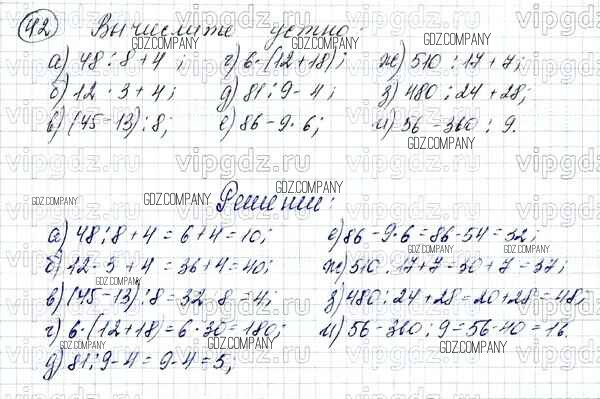 42 Вычислите устно:
а) 48 : 8 + 4 ; г) 6 · (12 + 18); ж) 510 : 17 + 7;
б) 12 · 3 + 4; д) 81 : 9 - 4; з) 480 : 24 + 28;
в) (45 - 13) : 8; е) 86 - 9 · 6; и) 56 - 360 : 9.
Решение:
а) 48 : 8 + 4 = 6 + 4 = 10; е) 86 - 9 · 6 = 86 - 54 = 32;
б) 12 · 3 + 4 = 36 + 4 = 40; ж) 510 : 17 + 7 = 30 + 7 = 37;
в) (45 - 13) : 8 = 32 : 8 = 4; з) 480 : 24 + 28 = 20 + 28 = 48;
г) 6 · (12 + 18) = 6 · 30 = 180; и) 56 - 360 : 9 = 56 - 40 = 16.
д) 81 : 9 - 4 = 9 - 4 = 5;
GDZ.COMPANY
vipgdz.ru